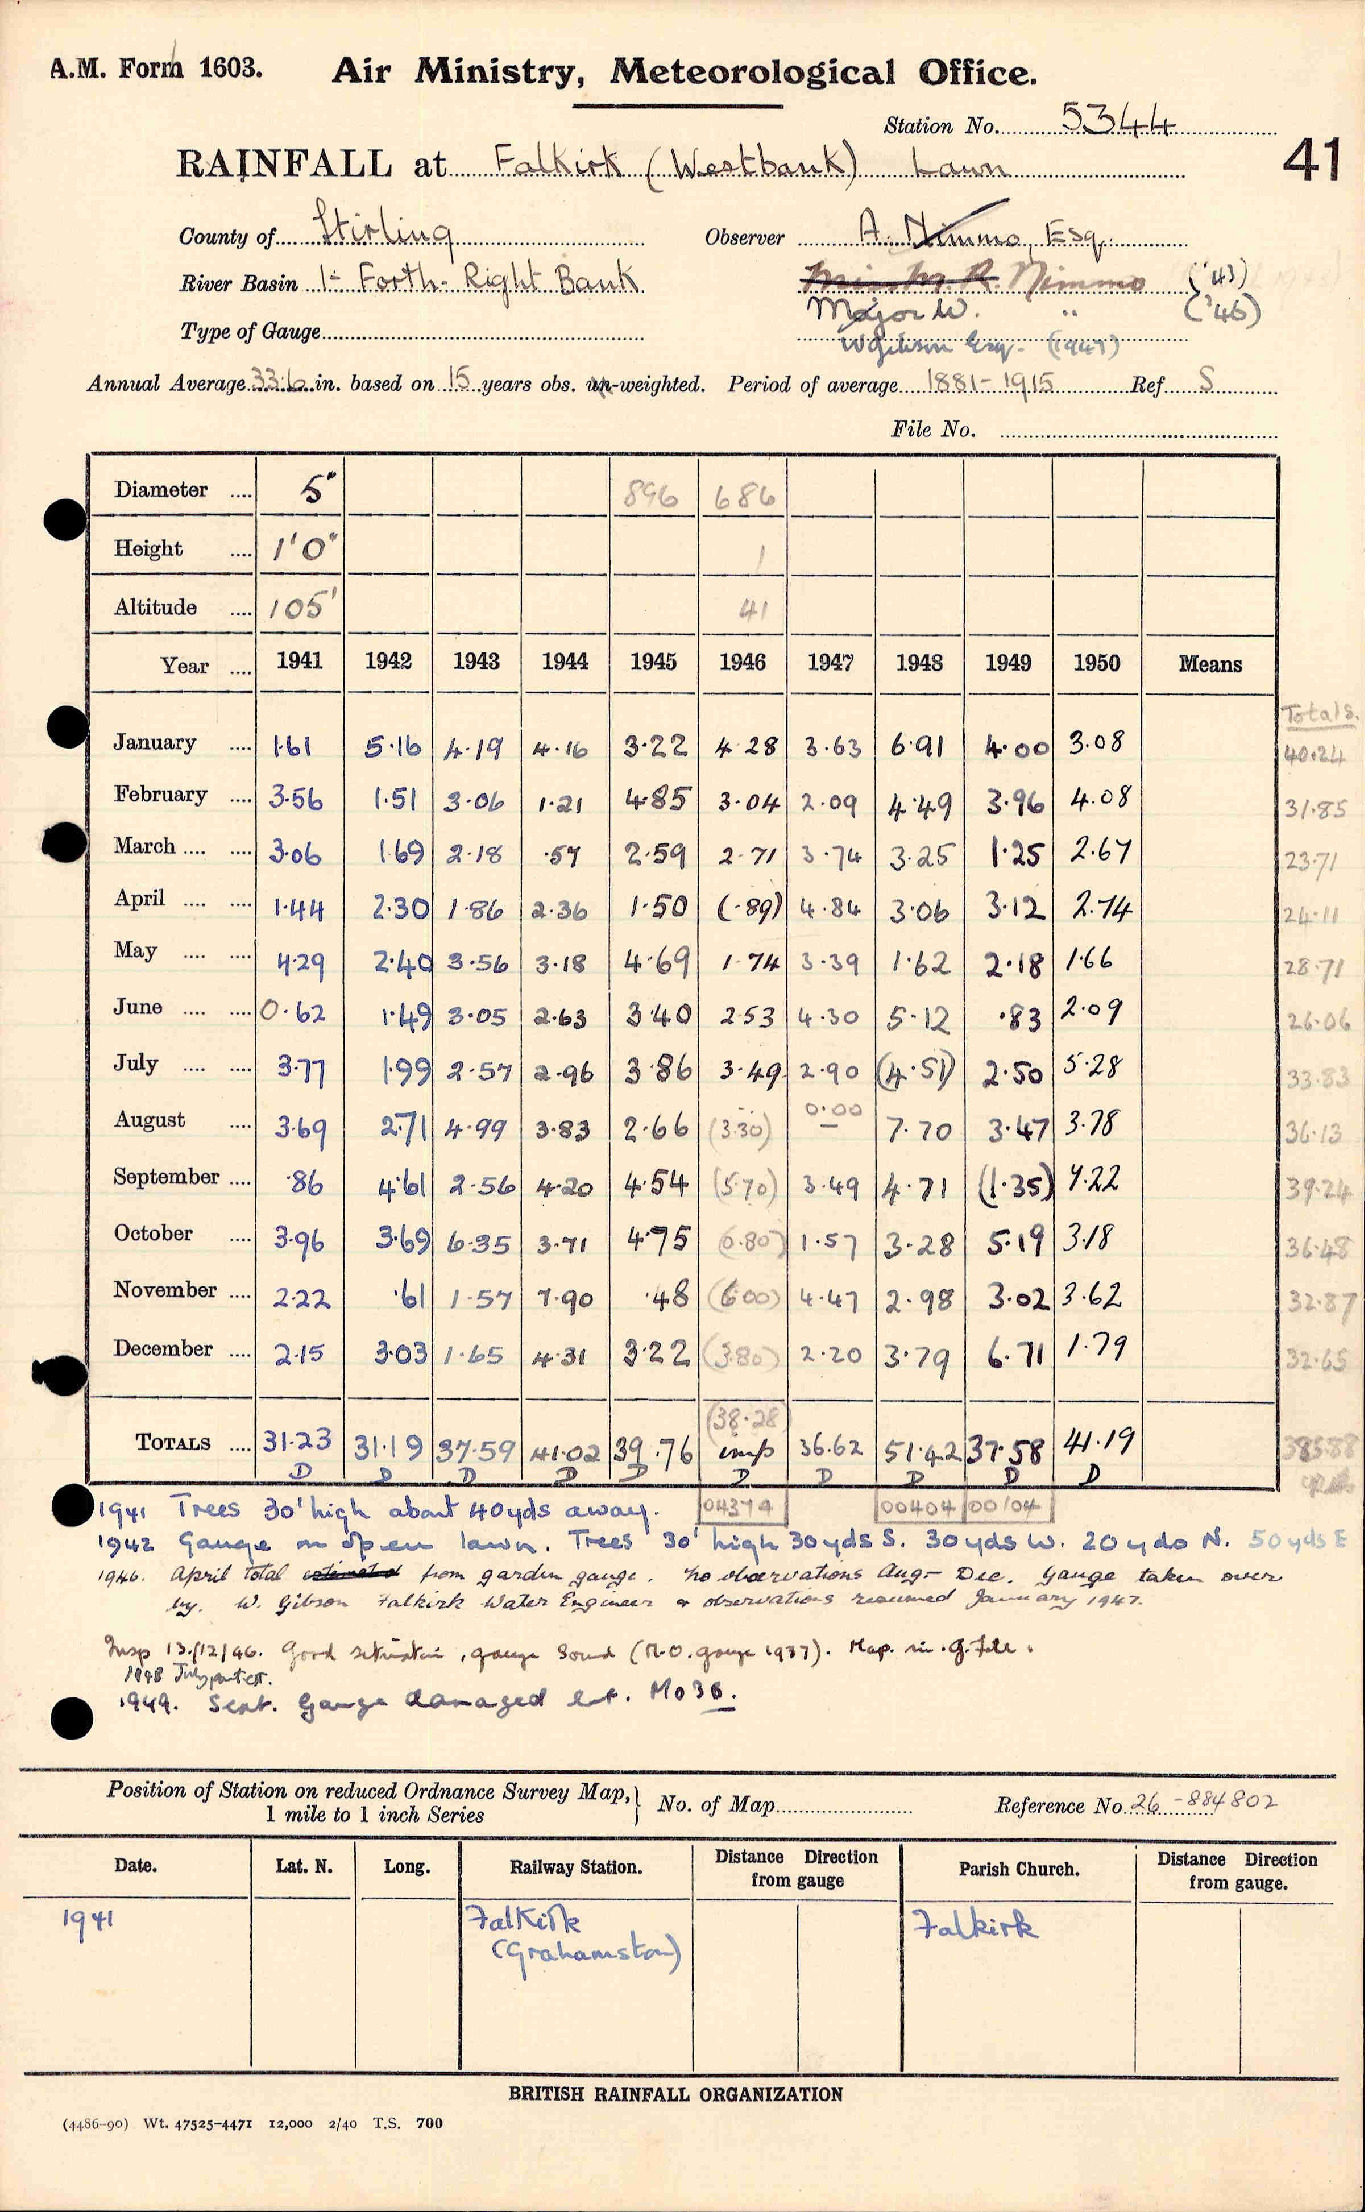 A.M. Form 1603. Air Ministry, Meteorological Office.
Station No. 5344
RAINFALL at Falkirk (Westbank) Lawn 41
County of Stirling Observer A. Nimmo, Esq.
River Basin 1= Forth - Right Bank Miss M. A. Nimmo ('43)
Major W. " ('46)
Type of Gauge W Gibson Esq. (1947)
Annual Average 33.6 in. based on 15 years obs. un-weighted. Period of average 1881-1915 Ref S
File No.
Diameter .... 5" 896 686
Height .... 1'0" 1
Altitude .... 105' 41
Year .... 1941 1942 1943 1944 1945 1946 1947 1948 1949 1950 Means
Totals.
January .... 1.61 5.16 4.19 4.16 3.22 4.28 3.63 6.91 4.00 3.08 40.24
February .... 3.56 1.51 3.06 1.21 4.85 3.04 2.09 4.49 3.96 4.08 31.85
March .... .... 3.06 1.69 2.18 .57 2.59 2.71 3.74 3.25 1.25 2.67 23.71
April .... .... 1.44 2.30 1.86 2.36 1.50 (.89) 4.84 3.06 3.12 2.74 24.11
May .... .... 4.29 2.40 3.56 3.18 4.69 1.74 3.39 1.62 2.18 1.66 28.71
June .... .... 0.62 1.49 3.05 2.63 3.40 2.53 4.30 5.12 .83 2.09 26.06
July .... .... 3.77 1.99 2.57 2.96 3.86 3.49 2.90 (4.51) 2.50 5.28 33.83
0.00
August .... 3.69 2.71 4.99 3.83 2.66 (3.30) — 7.70 3.47 3.78 36.13
September .... .86 4.61 2.56 4.20 4.54 (5.70) 3.49 4.71 (1.35) 7.22 39.24
October .... 3.96 3.69 6.35 3.71 4.75 (0.80) 1.57 3.28 5.19 3.18 36.48
November .... 2.22 .61 1.57 7.90 .48 (6.00) 4.47 2.98 3.02 3.62 32.87
December .... 2.15 3.03 1.65 4.31 3.22 (3.80) 2.20 3.79 6.71 1.79 32.65
(38.28)
TOTALS .... 31.23 31.19 37.59 41.02 39.76 imp 36.62 51.42 37.58 41.19 385.88
D D D D D D D D D D
04374 00404 00104
1941 Trees 30' high about 40yds away.
1942 Gauge on open lawn. Trees 30' high 30yds S. 30yds W. 20yds N. 50yds E
1946. April total estimated from garden gauge. No observations Aug - Dec. Gauge taken over
by. W. Gibson Falkirk Water Engineer & observations resumed January 1947.
Insp 13/12/46. Good situation, gauge sound (M.O. gauge 1937). Map. in G. File.
1948 July part est.
1949. Sept. Gauge damaged est. MO3B.
Position of Station on reduced Ordnance Survey Map, 1 mile to 1 inch Series } No. of Map Reference No 26 - 884802
Date. Lat. N. Long. Railway Station. Distance Direction from gauge Parish Church. Distance Direction from gauge.
1941 Falkirk Falkirk
(Grahamston)
BRITISH RAINFALL ORGANIZATION
(4486-90) Wt. 47525-4471 12,000 2/40 T.S. 700